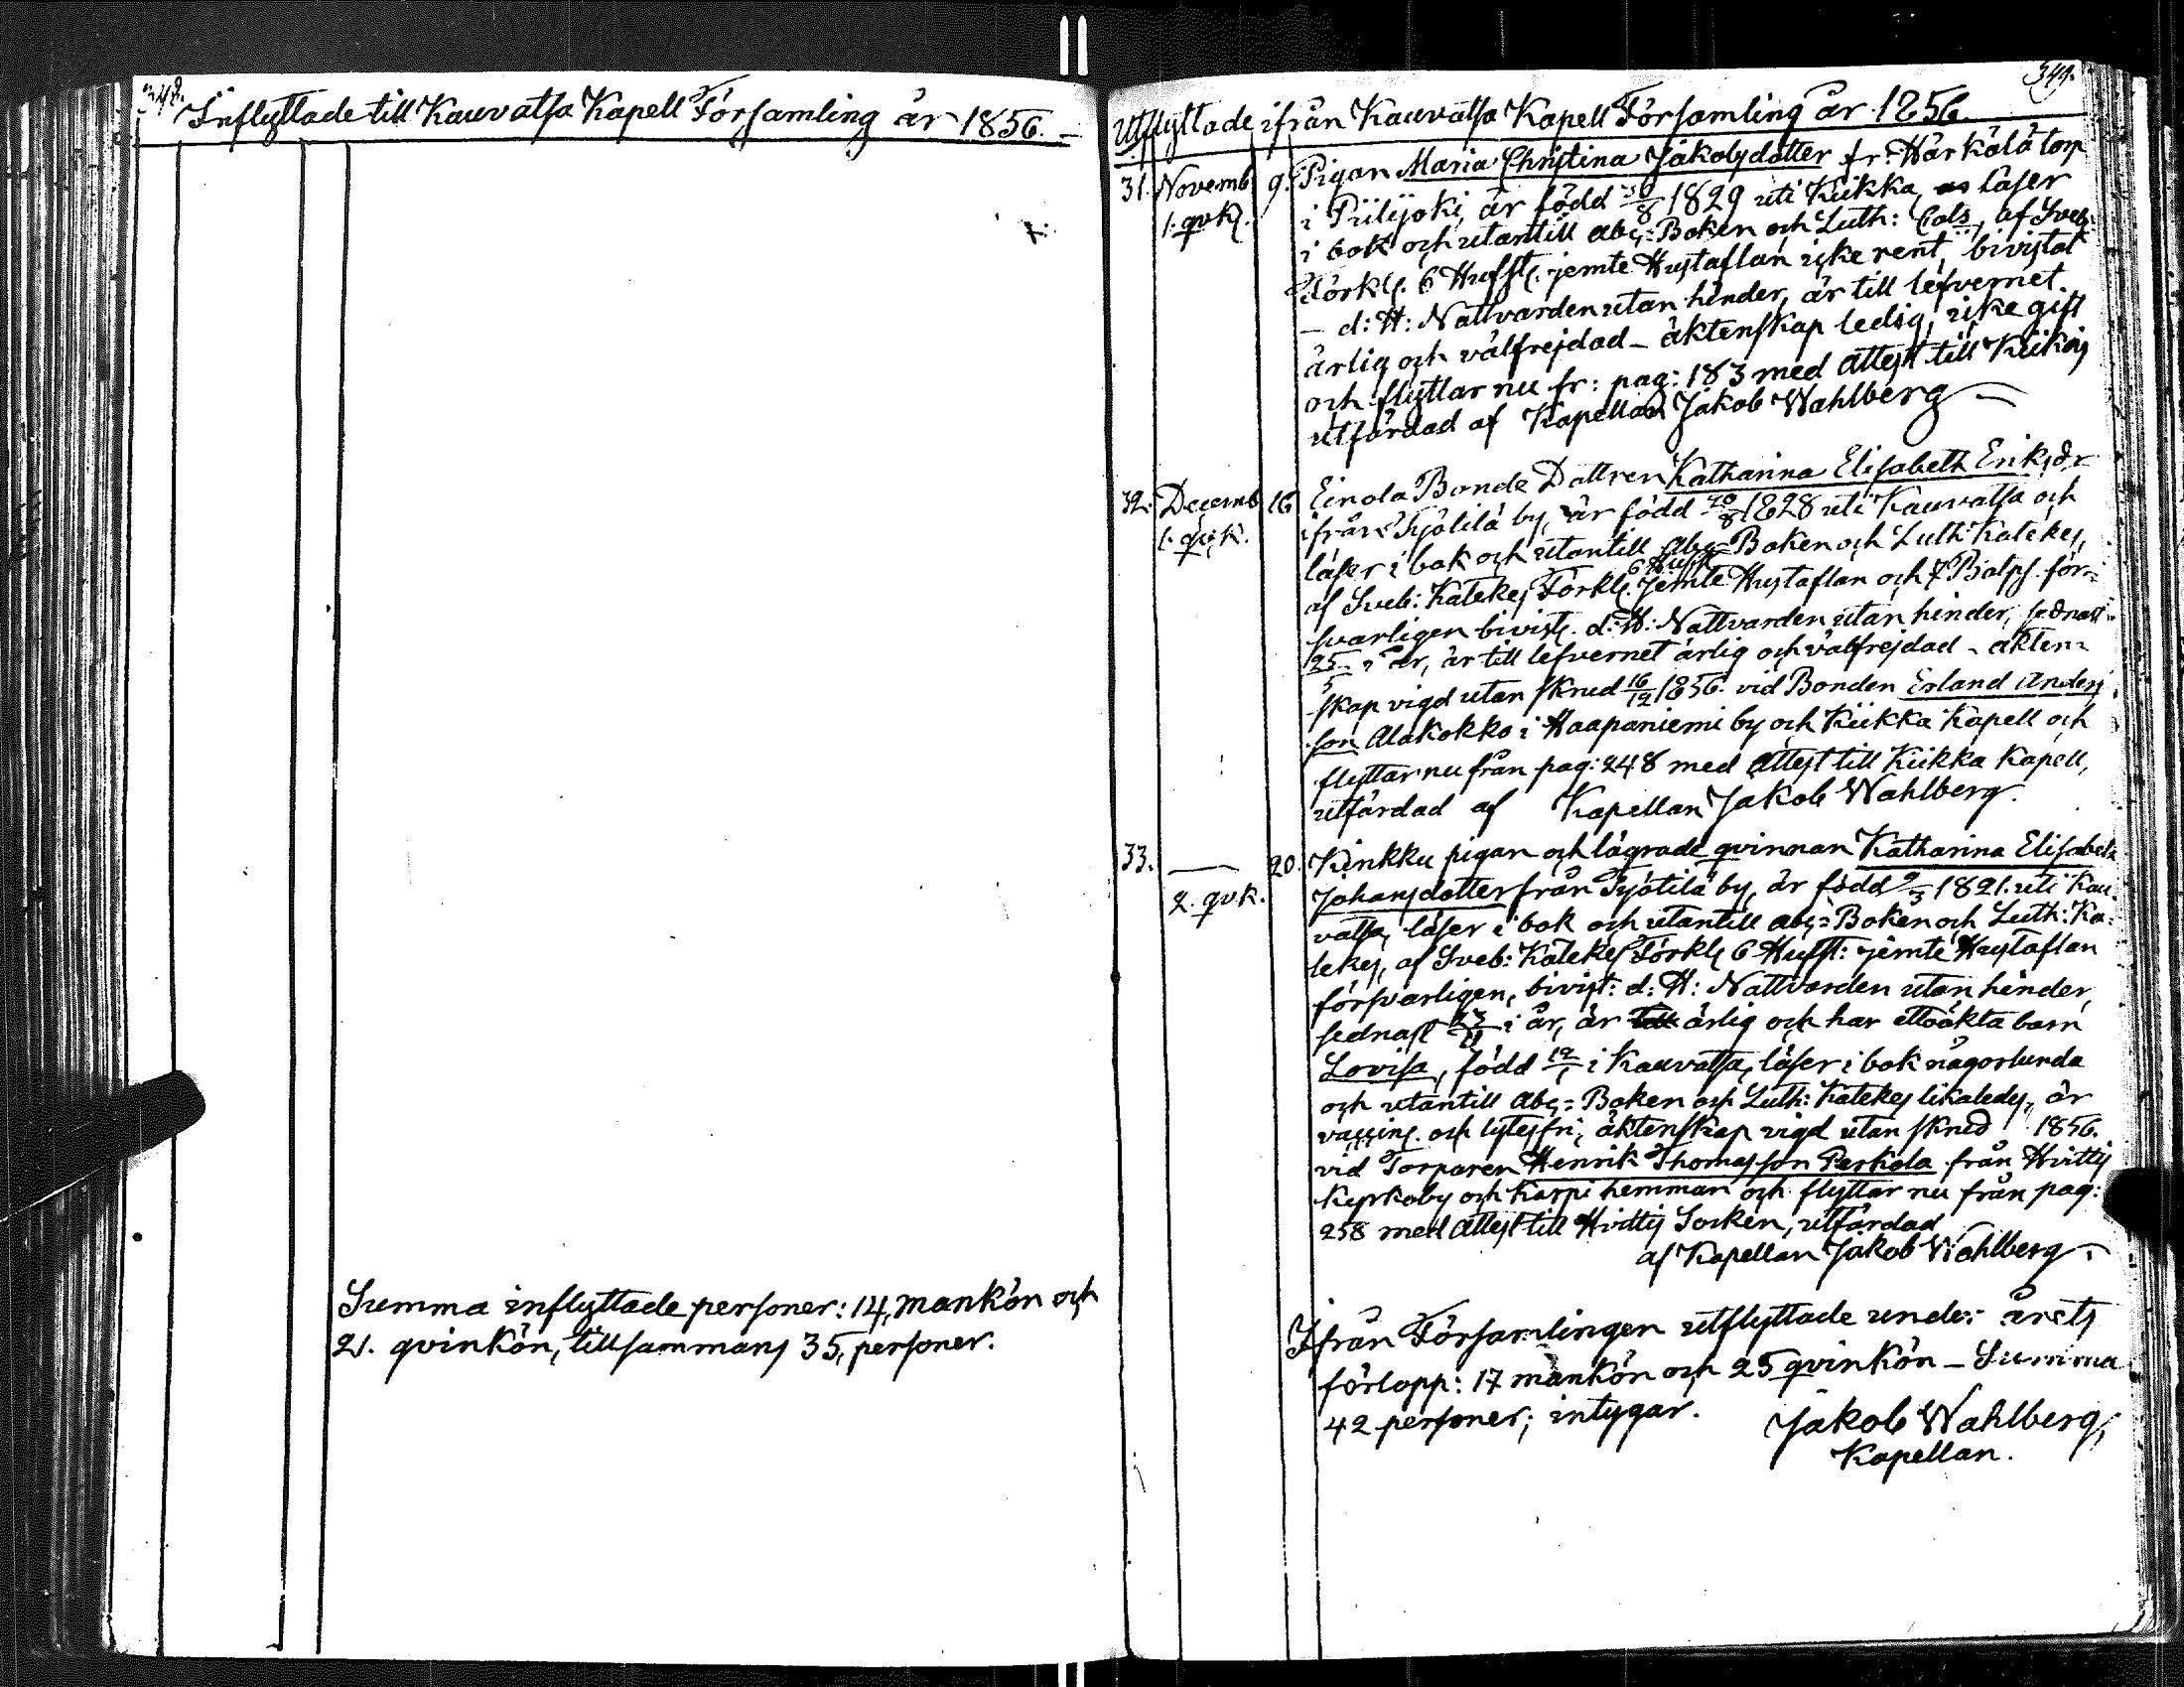 348.
Inflyttade till Kauvatsa Kapell Församling år 1856. –
Summa inflyttade personer: 14, mankön och
21. qvinkön, tillsammans 35, personer.
349.
Utflyttade ifrån Kauvatsa Kapell Församling år 1856.
31. Novemb. 9. Pigan Maria Christina Jakobsdotter fr: Härkälä torp
1. qvk. i Piilijoki, är född 30/8 1829 uti Kiikka, läser
i bok och utantill abc-Boken och Luth: Cats, af Sveb:
Förkl. 6 Hufst. jemte Hustaflan icke rent, bivistat
– d: H: Nattvarden utan hinder, är till lefvernet
ärlig och välfrejdad – äktenskap ledig, icke gift
och flyttar nu fr: pag: 183 med attest till Kiikois
utfärdad af Kapellan Jakob Wahlberg –
32. Decemb. 16 Einola Bonde Dottren Katharina Elisabeth Eriksdr
1. qvk. ifrån Yjötilä by, är född 1828 uti Kauvatsa och
läser i bok och utantill abc-Boken och Luth Katekes,
af Sveb: Katekes Förkl. 6 Hufst jemte Hustaflan och 7 Botps. för-
svarligen bivist. d: H: Nattvarden utan hinder, sednast
25/5 i år, är till lefvernet ärlig och välfrejdad – äkten-
skap vigd utan skrud 16/12 1856. vid Bonden Erland Anders
son Alakokko i Haapaniemi by och Kiikka Kapell och
flyttar nu från pag: 248 med attest till Kiikka Kapell,
utfärdad af Kapellan Jakob Wahlberg.
33. — 20. Kinkku pigan och lägrade qvinnan Katharina Elisabeth
2. qvk. Johansdotter från Yjötilä by, är född 9/3 1821. uti Kau
vatsa, läser i bok och utantill abc-Boken och Luth: Ka-
tekes, af Sveb: Katekes Förkl. 6 Hufst: jemte Hustaflan
försvarligen, bivist: d: H: Nattvarden utan hinder,
sednast i år, är ärlig och har ett oäkta barn
Lovisa, född i Kauvatsa, läser i bok någorlunda
och utantill abc-Boken och Luth: Katekes likaledes, är
vaccine. och lytesfri; äktenskap vigd utan skrud 1856.
vid Torparen Henrik Thomasson Perkola från Hvittis
Kyrkoby och Karpi hemman och flyttar nu från pag:
258 med attest till Hvittis Socken, utfärdad
af Kapellan Jakob Wahlberg –
Ifrån Församlingen utflyttade under årets
förlopp: 17 mankön och 25 qvinkön – Summa
42 personer; intygar.
Jakob Wahlberg,
Kapellan.